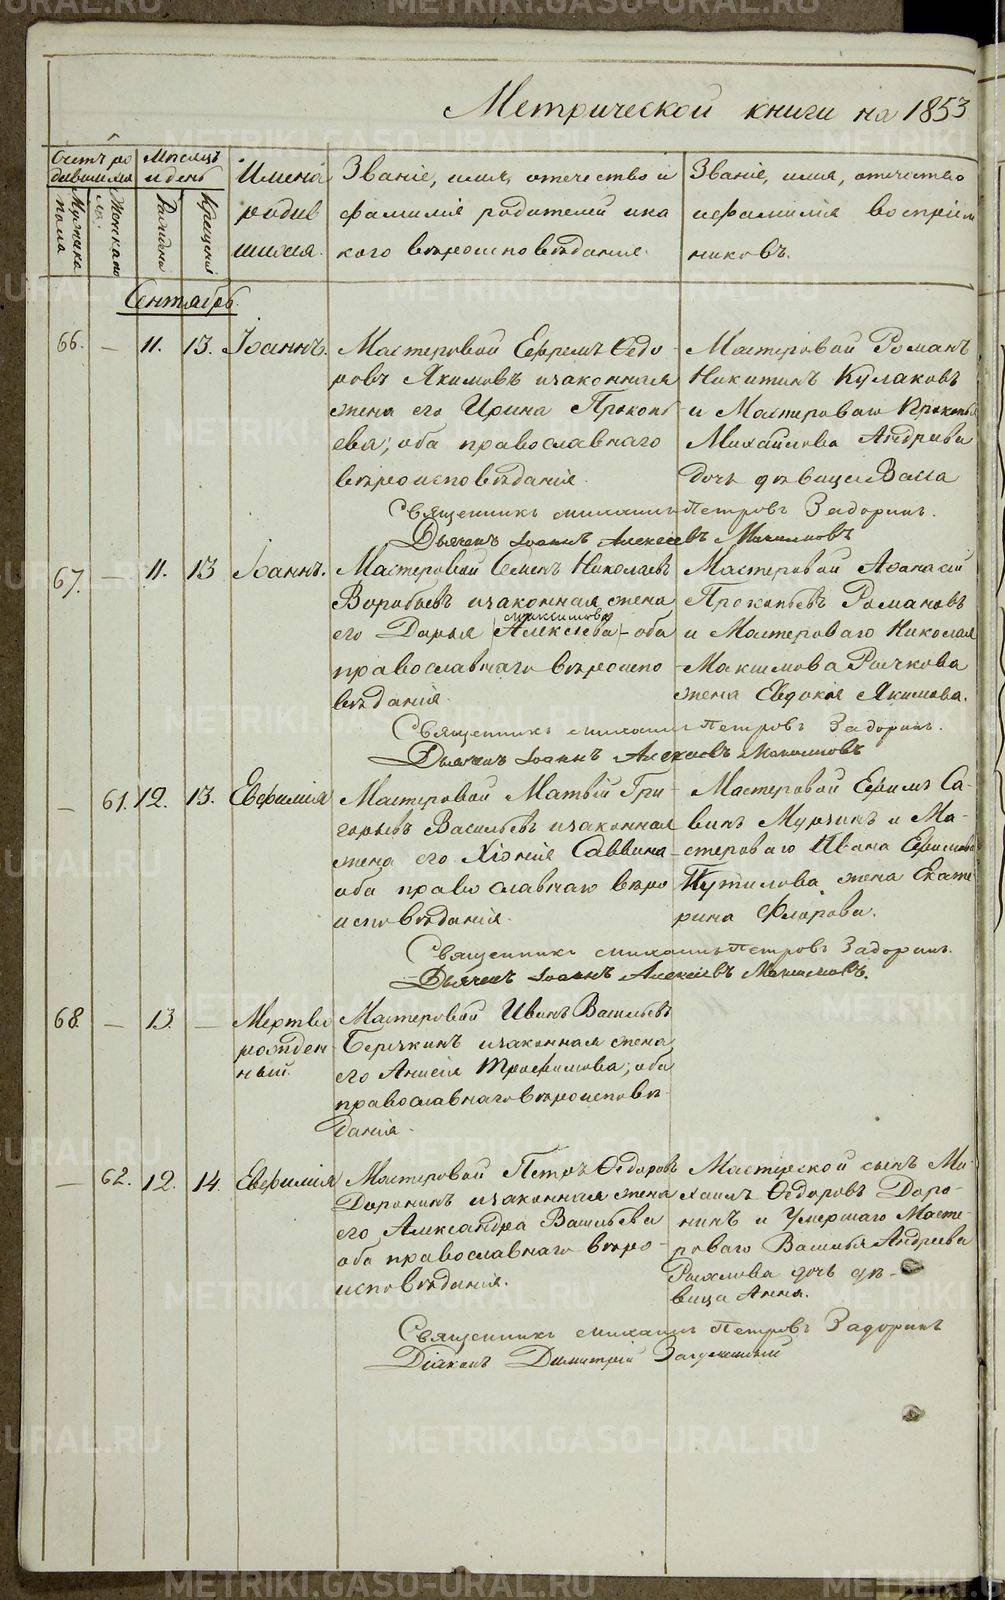 Метрической книги на 1853
Счетъ ро
дившихся
Мѣсяцъ
и день
Имена
родив
шихся.
Званіе, имя, отечество и
фамилія родителей и ка
кого вѣроисповѣданія.
Званіе, имя, отечество
и фамилія воспріем
никовъ.
Мужска
пола
Женскаго
Рожденія
Крещенія
Сентябрь.
66. — 11. 13. Іоаннъ.
Мастеровой Ефремъ Ѳедо-
ровъ Якимовъ и законная
жена его Ирина Прокопь
ева; оба православнаго
вѣроисповѣданія.
Мастеровой Романъ
Никитинъ Кулаковъ
и Мастероваго Прокопья
Михайлова Андреева
дочь дѣвица Васса
Священникъ Михаилъ Петровъ Задоринъ.
Дьячекъ Іоаннъ Алексеевъ Максимовъ
67. — 11. 13 Іоаннъ.
Мастеровой Семенъ Николаевъ
Воробьевъ и законная жена
Максимова
его Дарья Алексѣева — оба
православнаго вѣроиспо
вѣданія.
Мастеровой Аѳанасій
Прокопьевъ Романовъ
и Мастероваго Николая
Максимова Рычкова
жена Евдокія Якимова.
Священникъ Михаилъ Петровъ Задоринъ.
Дьячекъ Іоаннъ Алексеевъ Максимовъ
— 61. 12. 13. Евфимія
Мастеровой Матвѣй Гри-
горьевъ Васильевъ и законная
жена его Хіонія Саввина
оба православнаго вѣро
исповѣданія.
Мастеровой Ефимъ Са-
винъ Мурзинъ и Ма-
стероваго Ивана Ефимова
Путилова жена Екате
рина Флорова.
Священникъ Михаилъ Петровъ Задоринъ.
Дьячекъ Іоаннъ Алексеевъ Максимовъ.
68. — 13. — Мертво
рожден-
ный.
Мастеровой Иванъ Васильевъ
и законная жена
его Анисія Трофимова; оба
православнаго вѣроисповѣ-
данія.
— 62. 12. 14. Евфимія
Мастеровой Петръ Ѳедоровъ
Доронинъ и законная жена
его Александра Васильева
оба православнаго вѣро-
исповѣданія.
Мастерской сынъ Ми-
хаилъ Ѳедоровъ Доро-
нинъ и Умершаго Масте-
роваго Василья Андреева
дочь дѣ-
вица Анна.
Священникъ Михаилъ Петровъ Задоринъ
Діаконъ Димитрій
METRIKI.GASO-URAL.RU